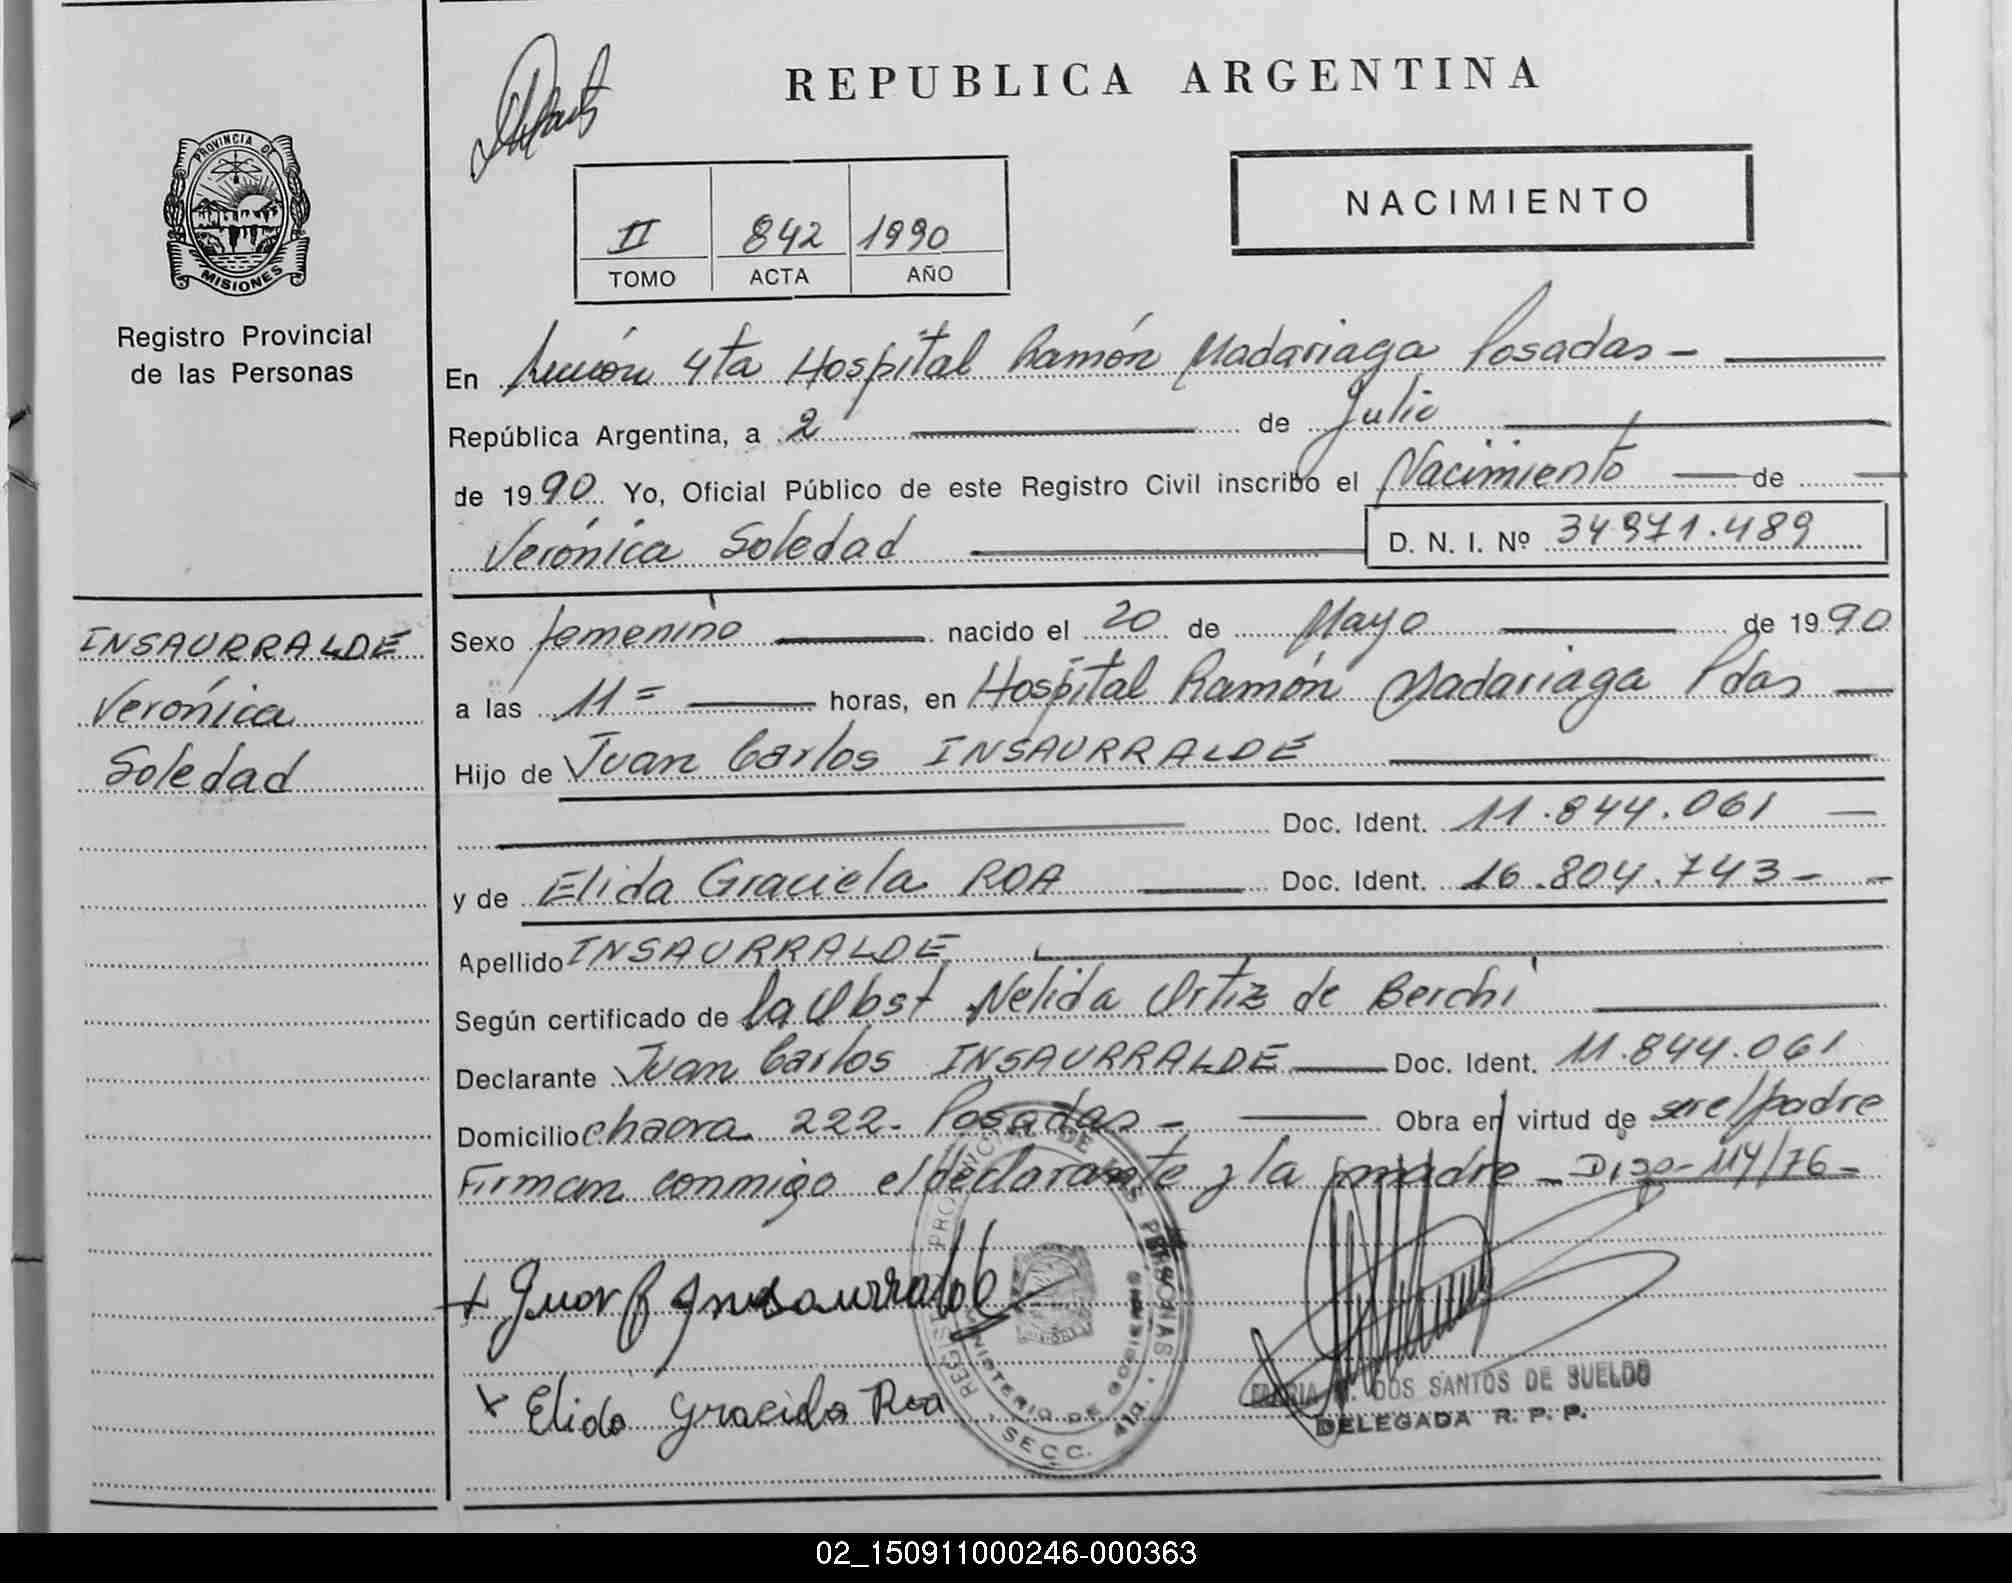 REPUBLICA ARGENTINA
PROVINCIA DE
MISIONES
Registro Provincial
de las Personas
NACIMIENTO
II 842 1990
TOMO ACTA AÑO
En Sección 4ta Hospital Ramón Madariaga Posadas -
República Argentina, a 2 de Julio
de 1990 Yo, Oficial Público de este Registro Civil inscribo el Nacimiento de
Verónica Soledad D. N. I. Nº 34971.489
INSAURRALDE
Verónica
Soledad
Sexo femenino nacido el 20 de Mayo de 1990
a las 11= horas, en Hospital Ramón Madariaga Pdas
Hijo de Juan Carlos INSAURRALDE
Doc. Ident. 11.844.061
y de Elida Graciela ROA Doc. Ident. 16.804.743-
Apellido INSAURRALDE
Según certificado de la Obst Nelida Ortiz de Berchi
Declarante Juan Carlos INSAURRALDE Doc. Ident. 11.844.061
Domicilio chacra 222- Posadas - Obra en virtud de ser el padre
Firman conmigo el declarante y la madre - Disp- 114/76=
REGISTRO PROVINCIAL DE LAS PERSONAS
MINISTERIO DE GOBIERNO
SECC. 4ta.
+ Juan C Insaurralde
x Elida Graciela Roa
MARIA DOS SANTOS DE SUELDO
DELEGADA R. P. P.
02_150911000246-000363